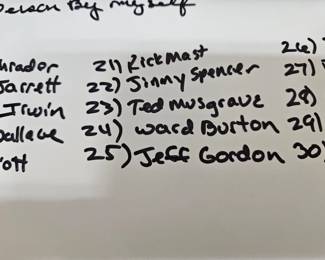 Person By myself
hrador 21) Rick Mast 26)
Jarrett 22) Jimmy Spencer 27)
Irwin 23) Ted Musgrave 28)
allace 24) Ward Burton 29)
ott 25) Jeff Gordon 30)